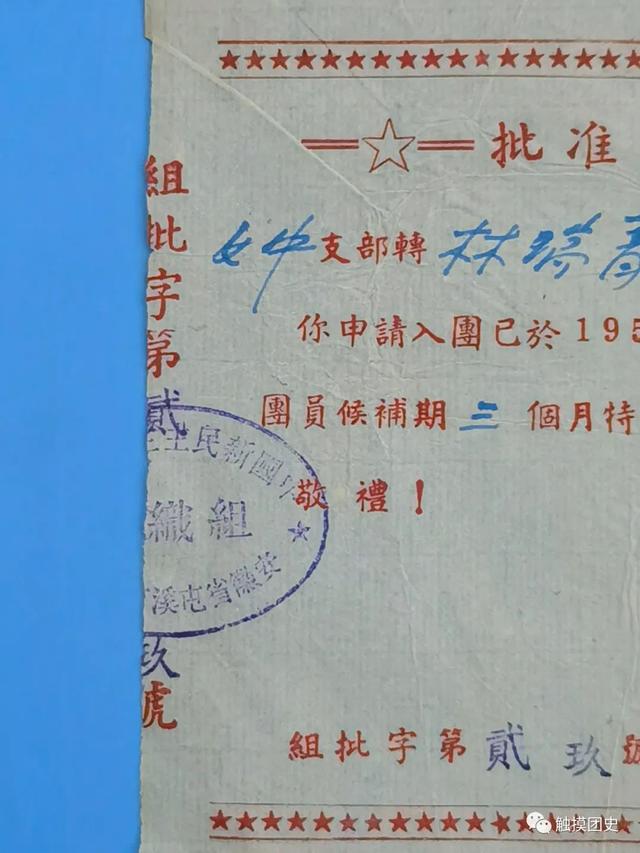 批准
女中支部轉 林瑞
你申請入團已於195
團員候補期三個月特
敬禮！
組批字第貳玖號
組批字第貳
玖號
國新民主主
組織
安徽省屯溪
触摸团史